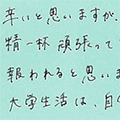 辛いと思いますが、
精一杯頑張って
報われると思いま
大学生活は、自